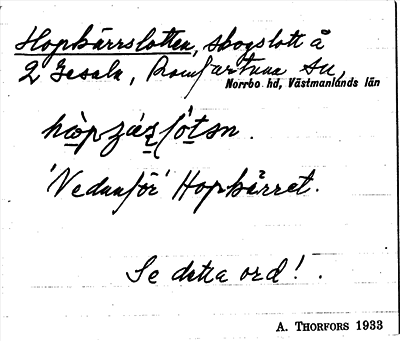 Hopkärrslotten, skogslott å
2 Gesala, Romfartuna sn,
Norrbo hd, Västmanlands län
'Vedanför' Hopkärret.
Se detta ord! .
A. THORFORS 1933